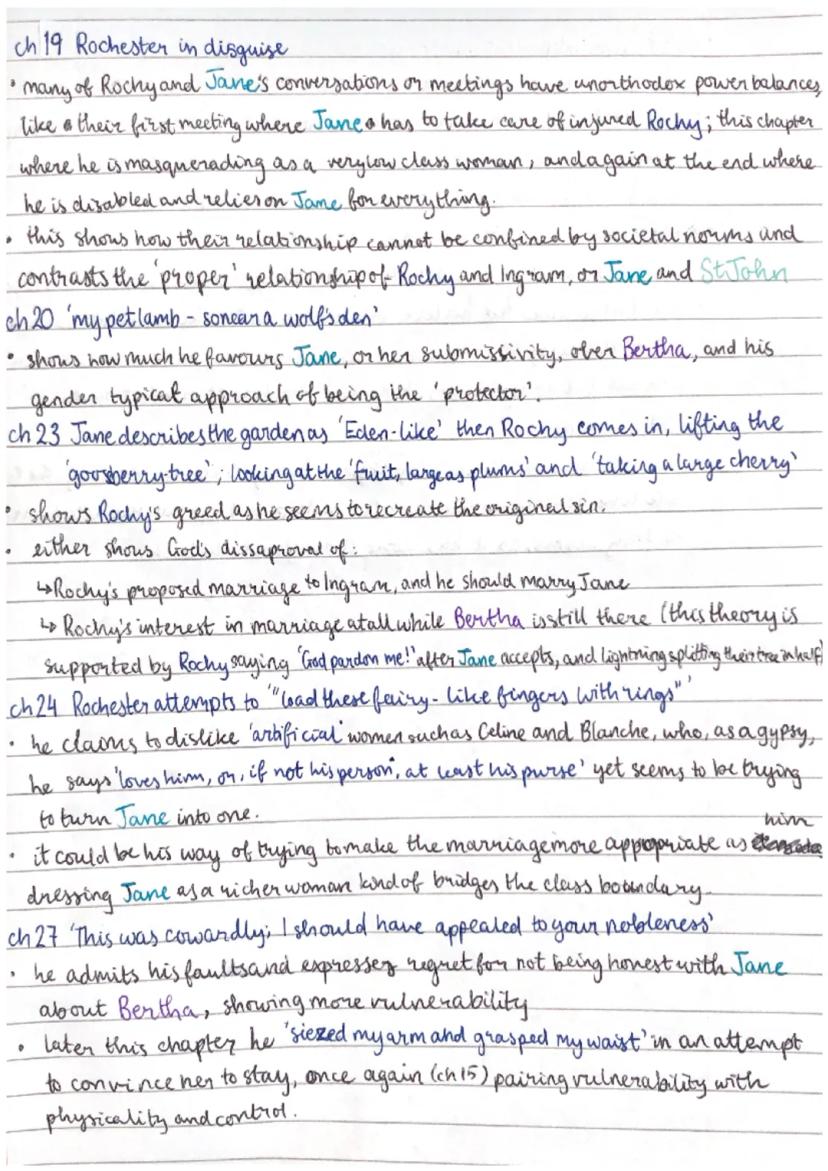 ch 19 Rochester in disguise
• many of Rochy and Jane's conversations or meetings have unorthodox power balances,
like their first meeting where Jane has to take care of injured Rochy; this chapter
where he is masquerading as a very low class woman, and again at the end where
he is disabled and relies on Jane for everything.
• this shows how their relationship cannot be confined by societal norms and
contrasts the 'proper' relationship of Rochy and Ingram, or Jane and St John
ch 20 'my pet lamb - so near a wolf's den'
• shows how much he favours Jane, or her submissivity, over Bertha, and his
gender typical approach of being the 'protector'.
ch 23 Jane describes the garden as 'Eden-like' then Rochy comes in, lifting the
'goosberry tree'; looking at the 'fruit, large as plums' and 'taking a large cherry'
• shows Rochy's greed as he seems to recreate the original sin.
• either shows God's dissaproval of:
↳ Rochy's proposed marriage to Ingram, and he should marry Jane
↳ Rochy's interest in marriage at all while Bertha is still there (this theory is
supported by Rochy saying 'God pardon me!' after Jane accepts, and lightning splitting their tree in half)
ch 24 Rochester attempts to '"load these fairy-like fingers with rings"'
• he claims to dislike 'artificial' women such as Celine and Blanche, who, as a gypsy,
he says 'loves him, or, if not his person, at least his purse' yet seems to be trying
to turn Jane into one.
• it could be his way of trying to make the marriage more appropriate as him
dressing Jane as a richer woman kind of bridges the class boundary
ch 27 'This was cowardly; I should have appealed to your nobleness'
• he admits his faults and expresses regret for not being honest with Jane
about Bertha, showing more vulnerability
• later this chapter he 'siezed my arm and grasped my waist' in an attempt
to convince her to stay, once again (ch 15) pairing vulnerability with
physicality and control.